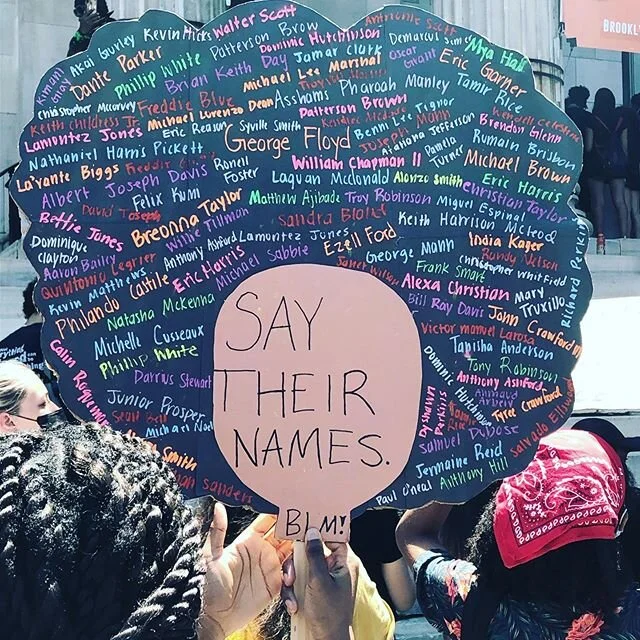 BROOKL
Walter Scott
Antronie Scott
Kevin Hicks
Patterson Brown
Dominic Hutchinson
Demarcus
Mya Hall
Akai Gurley
Jamar Clark
Oscar Grant
Eric Garner
Kimani Gray
Dante Parker
Phillip White
Brian Keith Day
Michael Lee Marshal
Tamir Rice
Christopher McCorvey
Freddie Blue
Michael Lorenzo Dean
Asshams Pharoah Manley
Keith Childress Jr
Patterson Brown
Brendon Glenn
Lamontez Jones
Eric Reason
Syville Smith
Kendrec McDade
Benni Lee Tignor
Rumain Brisbon
Nathaniel Harris Pickett
George Floyd
Joseph Mann
Pamela Turner
Michael Brown
La'vante Biggs
Freddie
Ronell Foster
William Chapman II
Albert Joseph Davis
Laquan Mcdonald
Alonzo Smith
Eric Harris
Christian Taylor
Felix Kumi
Matthew Ajibade
Troy Robinson
Miguel Espinal
David Joseph
Breonna Taylor
Sandra Bland
Keith Harrison McLeod
Bettie Jones
Willie Tillman
Dominique Clayton
Anthony Ashford
Lamontez Jones
Ezell Ford
George Mann
India Kager
Randy Nelson
Aaron Bailey
Quintonio Legrier
Eric Harris
Michael Sabbie
Frank Smart
Christopher Whitfield
Richard Perkins
Kevin Matthews
Philando Castile
Natasha McKenna
Janet Wilson
Alexa Christian
Mary Truxillo
Bill Ray Davis
John Crawford III
Michelle Cusseaux
Victor manuel Larosa
Tanisha Anderson
Phillip White
Calin Roquemore
Darrius Stewart
Tony Robinson
Anthony Ashford
Junior Prosper
Dominic Hutchinson
Tyree Crawford
Dyshawn Perkins
Samuel Dubose
Salvado Ellswood
Jermaine Reid
Smith
Sanders
Paul O'neal
Anthony Hill
SAY
THEIR
NAMES.
BLM!